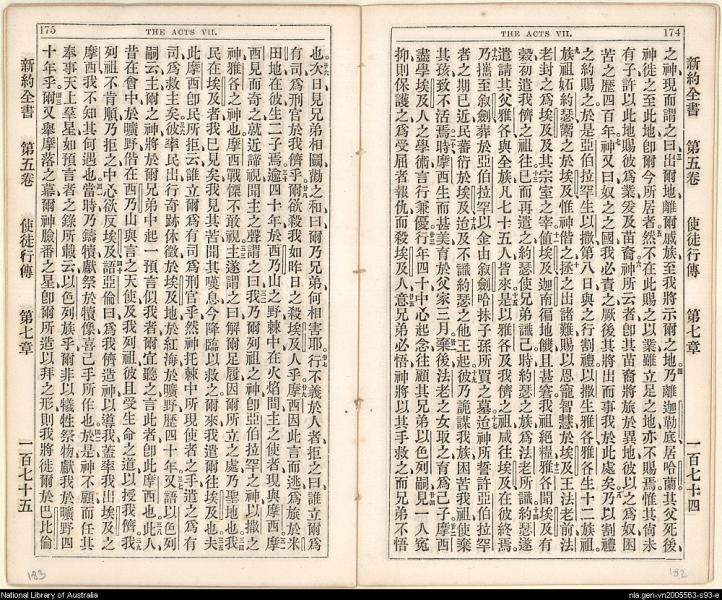 174 THE ACTS VII.
新約全書 第五卷 使徒行傳 第七章 一百七十四
之神現而謂之曰出爾地離爾戚族至我將示爾之地乃離迦勒底居哈蘭其父死後
神徙之至此地卽爾今所居者然不在此賜之以業雖立足之地亦不賜焉惟其尙未
有子許以此地賜彼爲業爰及苗裔神所云者卽其苗裔將旅於異地彼以之爲奴困
苦之歷四百年神又曰奴之之國我必責之厥後其將出而事我於此處矣乃以割禮
之約賜之於是亞伯拉罕生以撒第八日與之行割禮以撒生雅各雅各生十二族祖
族祖妬約瑟鬻之於埃及惟神偕之拯之出諸難賜以恩寵智慧於埃及王法老前法
老封之爲埃及及其宗室之宰值埃及迦南徧地饑且甚窘我祖絕糧雅各聞埃及有
穀初遣我儕之祖往已而再遣之約瑟使兄弟識己時約瑟之族爲法老所識約瑟遂
遣請其父雅各與全族凡七十五人皆來是以雅各及我儕之祖咸往埃及在彼終焉
乃攜至敘劍葬於亞伯拉罕以金由敘劍哈抹子孫所買之墓迨神所誓許亞伯拉罕
者之期已近民蕃衍於埃及迨及不識約瑟之他王起彼乃詭謀我族困苦我祖使棄
其孩致不活焉時摩西生而甚美育於父家三月棄後法老之女取之育爲己子摩西
盡學埃及人之學術言行兼優行年四十中心起念往顧其兄弟以色列嗣見一人寃
抑則保護之爲受屈者報仇而殺埃及人意兄弟必悟神將以其手救之而兄弟不悟
182
175 THE ACTS VII.
也次日見兄弟相鬬勸之和曰爾乃兄弟何相害耶行不義於人者拒之曰誰立爾爲
有司爲刑官於我儕乎爾欲殺我如昨日之殺埃及人乎摩西因此言而逃爲旅於米
田地在彼生二子焉逾四十年於西乃山之野棘中在火焰間主之使者現與摩西摩
西見而奇之就近諦視聞主之聲謂之曰我乃爾列祖之神卽亞伯拉罕之神以撒之
神雅各之神也摩西戰慄不敢視主遂謂之曰解爾足履因爾所立之處乃聖地也我
民在埃及者我已見矣我見其苦聞其嘆息今降臨以救之爾來我遣爾往埃及也夫
此摩西卽民所拒云誰立爾爲有司爲刑官乎然神托棘中所現使者之手遣之爲有
司爲救主矣彼率民出行奇跡休徵於埃及地於紅海於曠野歷四十年又語以色列
嗣云主爾之神將於爾兄弟中起一預言似我者爾宜聽之言此者卽此摩西也此人
昔在會中於曠野偕在西乃山與言之天使及我列祖彼且受生命之道以授我儕我
列祖不肯順乃拒之中心欲反埃及語亞倫曰爲我儕造神以導我蓋率我出埃及之
摩西我不知其何遇也當時乃鑄犢獻祭於犢像喜己手所作也於是神不顧而任其
奉事天上羣星如預言者之錄所載云以色列族乎爾非以犧牲祭物獻我於曠野四
十年乎爾又舉摩落之幕爾神臉番之星卽爾所造以拜之形則我將徙爾於巴比倫
新約全書 第五卷 使徒行傳 第七章 一百七十五
183
National Library of Australia
nla.gen-vn2005563-s93-e